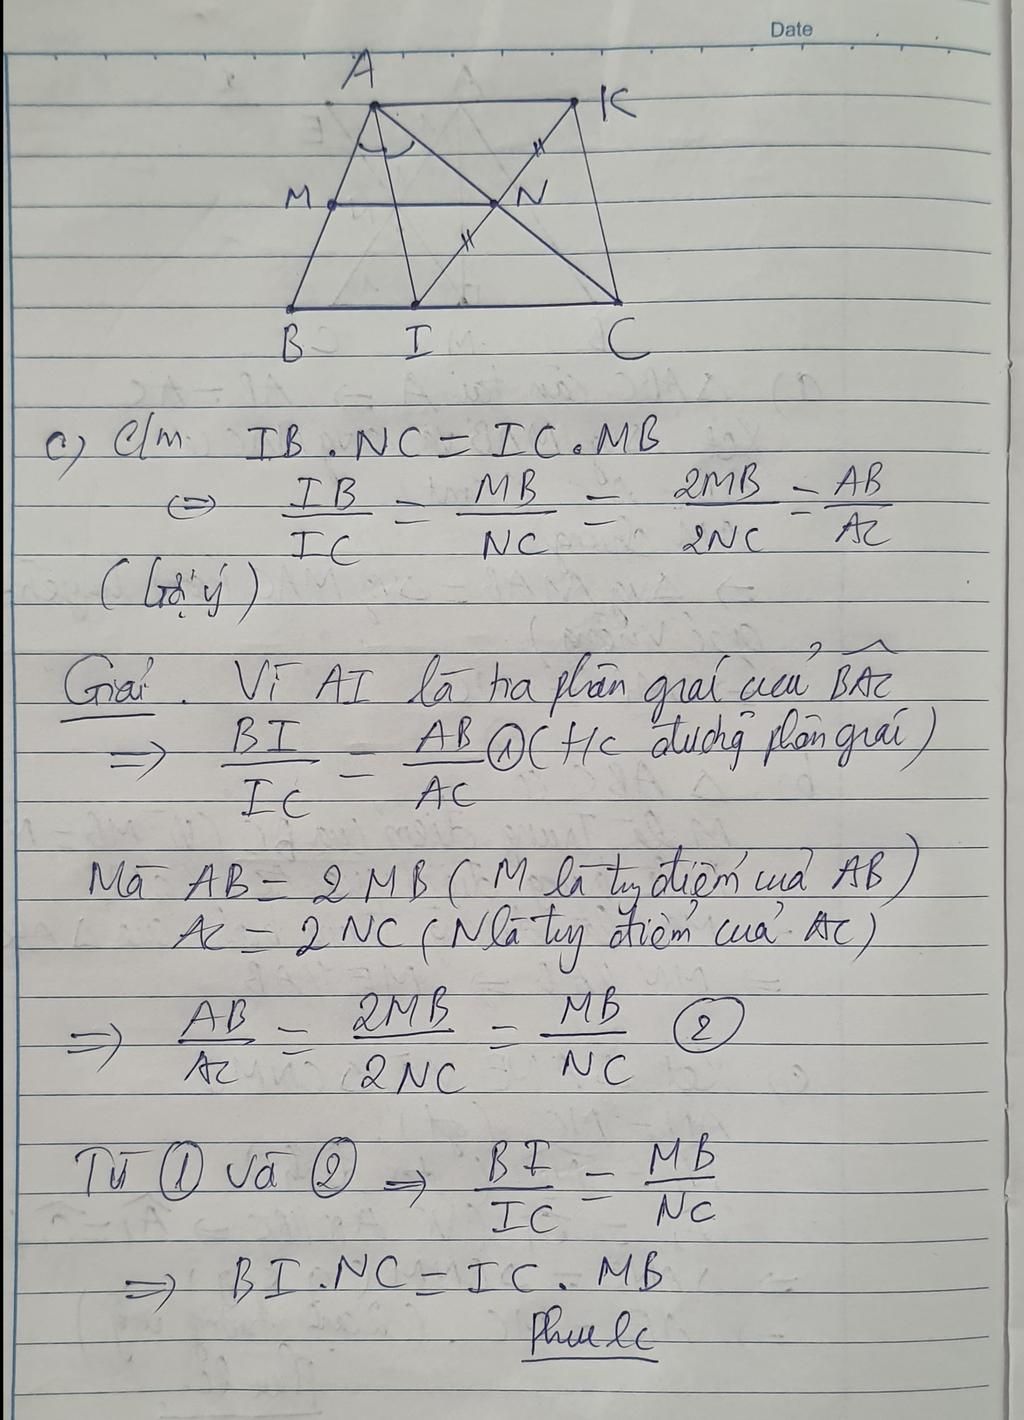 Date
A
K
M
N
B I C
c) C/m IB . NC = IC . MB
⇔ IB/IC = MB/NC = 2MB/2NC = AB/AC
(Gợi ý)
Giải. Vì AI là tia phân giác của BAC
⇒ BI/IC = AB/AC ① (t/c đường phân giác)
Mà AB = 2MB (M là tg điểm của AB)
AC = 2NC (N là tg điểm của AC)
⇒ AB/AC = 2MB/2NC = MB/NC ②
Từ ① và ② ⇒ BI/IC = MB/NC
⇒ BI . NC = IC . MB